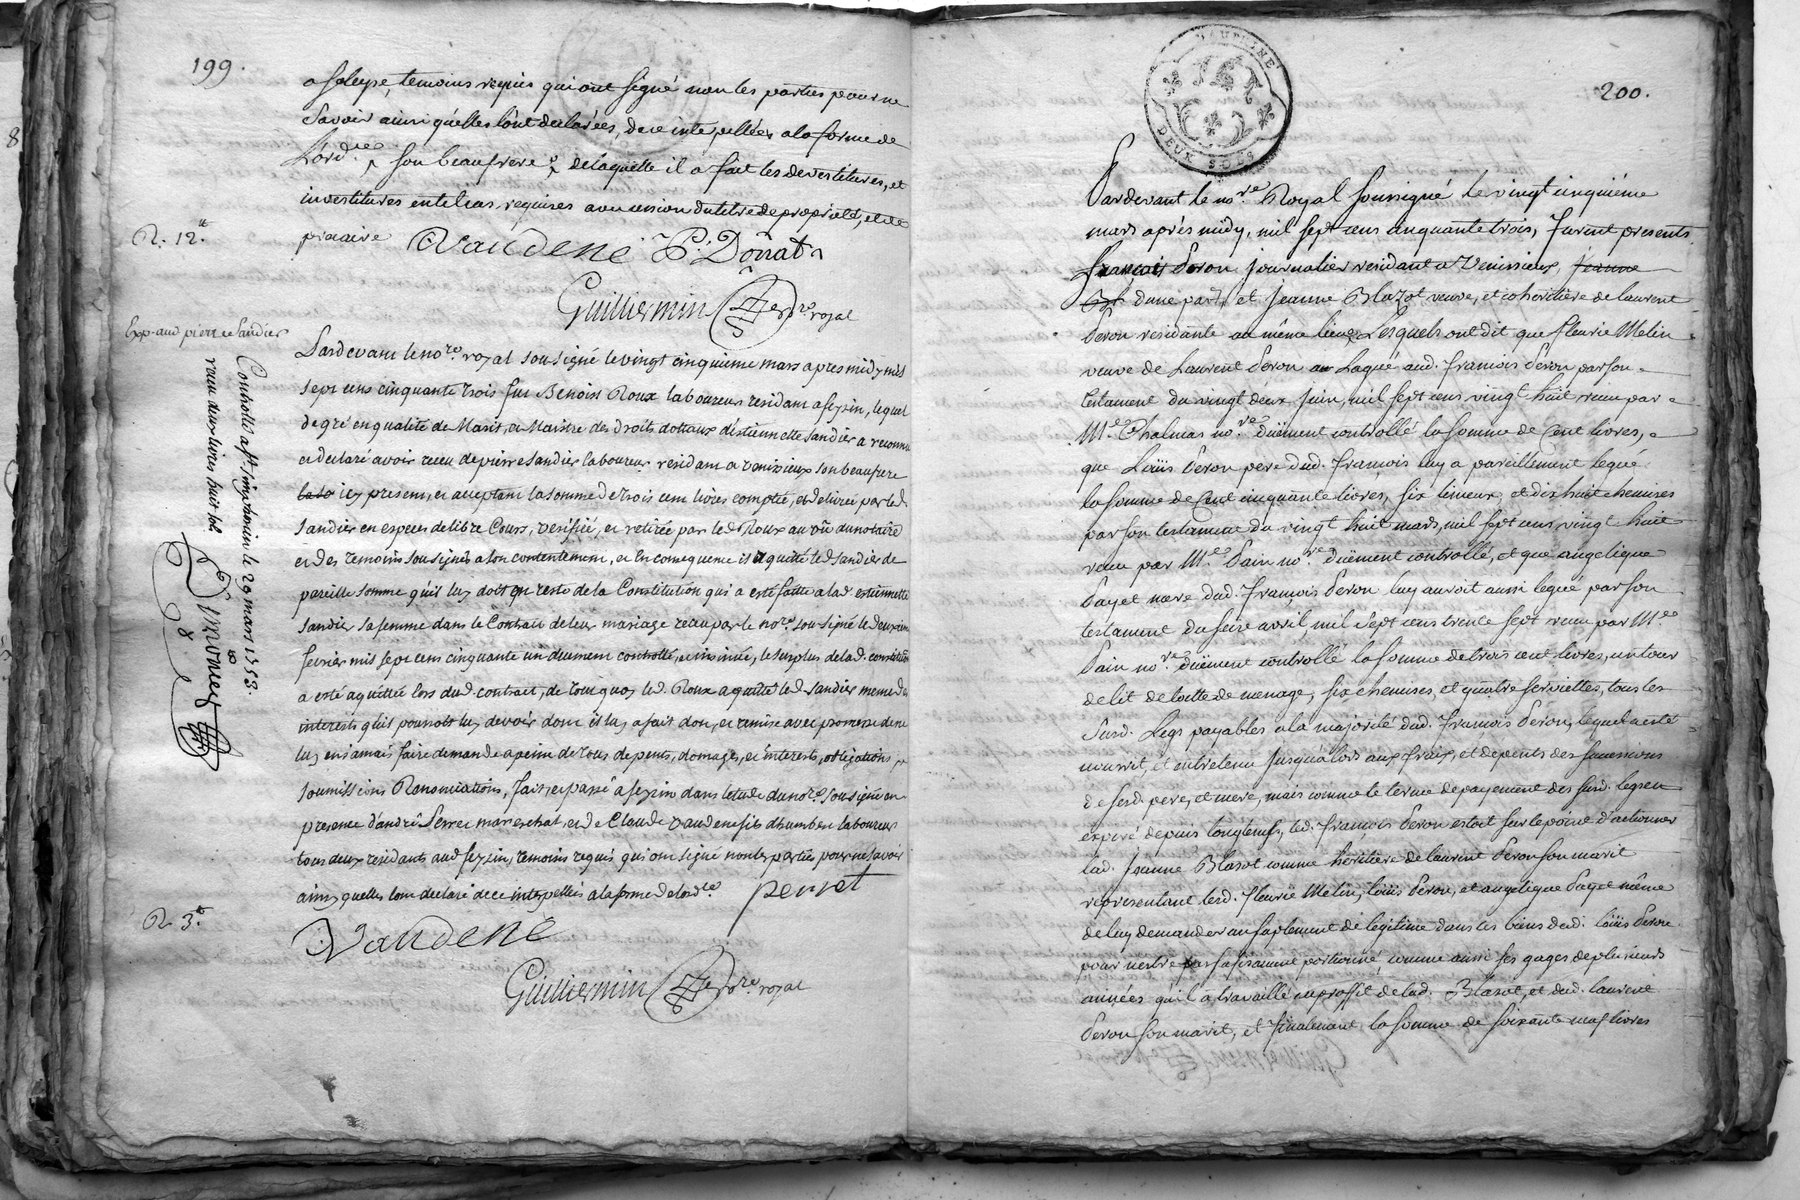 199.
a feleyse, temoins requis qui ont signé non les parties pour ne
Savoir ainsi qu'elles l'ont declarées, de ce interpellées a la forme de
L'ord.ce son beaufrere de laquelle il a fait les devestitures, et
investitures en telcas requises avec cession du titre de proprieté, et de
precaire Vandene P. Donat
R. 12.s
Guilliermin no.re royal
Exp. aud pierre Sandier
Controllé a st. simphorien le 29 mars 1753.
reçu deux livres huit sol
Pardevant le no.re royal sousigné le vingt cinquieme mars apres midy mil
sept cens cinquante trois fut Benoist Roux laboureur residant a feysin, lequel
de gré en qualité de Marit, et Maistre des droits dottaux d'estiennette Sandier a reconnu
et declaré avoir receu de pierre Sandier laboureur residant a venissieux son beaufrere
icy present, et acceptant la somme de trois cent livres comptée, et delivrée par led.
Sandier en especes de libre Cours, verifiée, et retirée par led. Roux au vû du notaire
et des temoins sousignés a son contentement, et en consequence il a quitté led Sandier de
pareille somme qu'il luy doit en reste de la Constitution qui a esté faitte a lad. estiennette
Sandier sa femme dans le Contract de leur mariage receu par le no.re sousigné le deuxieme
fevrier mil sept cens cinquante un duement controllé, et insinué, le surplus de lad. constitution
a esté aquittée lors dud. contract, de tout quoy led. Roux a quitté led. Sandier meme des
interests qu'il pourroit luy devoir dont il luy a fait don, et remise avec promesse de ne
luy en jamais faire demande a peine de tous depents, domages, et interests, obligations
soumissions Renonciations, fait, et passé a feysin dans letude du no.re sousigné en
presence d'andré Perret mareschal, et de Claude vandene fils d'humbert laboureur
tous deux residants aud feysin, temoins requis qui ont signé non les parties pour ne savoir
ainsy quelles lont declaré de ce interpellés a la forme de lord.ce perret
R. 3.s
Vandene
Guilliermin no.re royal
200.
DAUPHINE
DEUX SOLS
Pardevant le no.re Royal soussigné le vingt cinquiéme
mars aprés midy, mil sept cens cinquante trois, furent presents
françois Peron journalier residant a Venissieux, Jeanne
d'une part, et Jeanne Blazot veuve, et coheritiére de laurent
Peron residante au même lieu, Lesquels ont dit que fleurie Melin
veuve de Laurent Peron a Legué aud. françois Peron par son
testament du vingt deux juin, mil sept cens vingt huit receu par
M.e Chalmas no.re duëment controllé la somme de Cent livres,
que Loüis Peron pere dud. françois luy a pareillement legué
la somme de Cent cinquante livres, six linceux, et dix huit chemises
par son testament du vingt huit mars, mil sept cens vingt huit
receu par M.e Pain no.re duëment controllé, et que angelique
Payet mere dud. françois Peron luy auroit aussi legué par son
testament du seize avril, mil sept cens trente sept receu par M.e
Pain no.re duëment controllé la somme de trois cent livres, un tour
de lit de toille de menage, six chemises, et quatre serviettes, tous les
susd. legs payables a la majorité dud. françois Peron, lequel a esté
nourrit, et entretenu jusqu'alors aux fraix, et depents des successions
de sesd. pere, et mere, mais comme le terme de payement des susd. legs en
expiré depuis longtems, led. françois Peron estoit sur le point d'actionner
lad. Jeanne Blazot comme heritiére de laurent Peron son marit
representant lesd. fleurie Melin, loüis Peron, et angelique Payet même
de luy demander un suplement de legitime dans les biens dud. loüis Peron
pour n'estre pas suffisament portionné comme aussi ses gages de plusieurs
années qu'il a travaillé au proffit de lad. Blazot, et dud. laurent
Peron son marit, et finalement la somme de soixante neuf livres